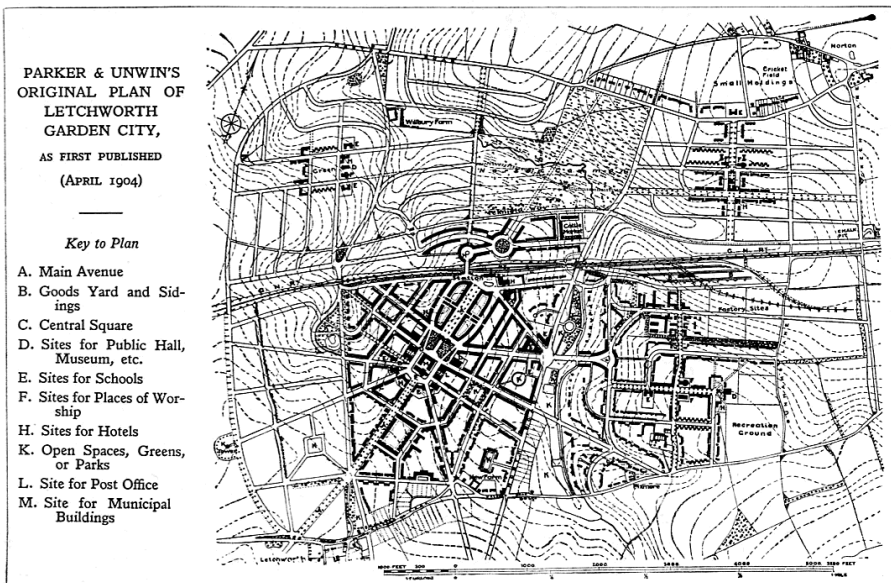 PARKER & UNWIN'S
ORIGINAL PLAN OF
LETCHWORTH
GARDEN CITY,
AS FIRST PUBLISHED
(APRIL 1904)
Key to Plan
A. Main Avenue
B. Goods Yard and Sid-
ings
C. Central Square
D. Sites for Public Hall,
Museum, etc.
E. Sites for Schools
F. Sites for Places of Wor-
ship
H. Sites for Hotels
K. Open Spaces, Greens,
or Parks
L. Site for Post Office
M. Site for Municipal
Buildings
Norton
Cricket
Field
Small Holdings
Wilbury Farm
Green
G. N. RY
G. N. RY
Station
Factory Sites
Recreation
Ground
Pixmore
Letchworth
1000 FEET 500 0 1000 2000 3000 4000 5000
1 MILE